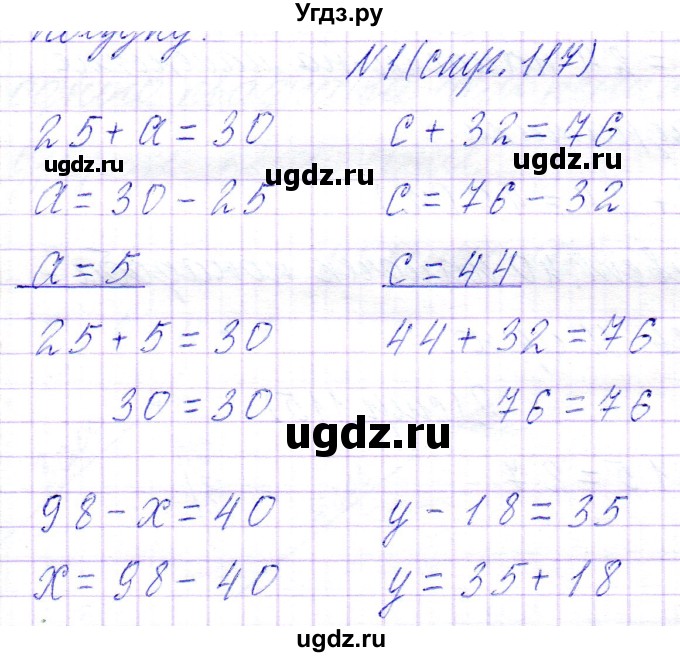 Угдз.ру
N1 (стр. 117)
25 + a = 30
c + 32 = 76
ugdz.ru
ugdz.ru
ugdz.ru
a = 30 - 25
c = 76 - 32
a = 5
c = 44
25 + 5 = 30
44 + 32 = 76
30 = 30
76 = 76
ugdz.ru
98 - x = 40
y - 18 = 35
x = 98 - 40
y = 35 + 18
ugdz.ru